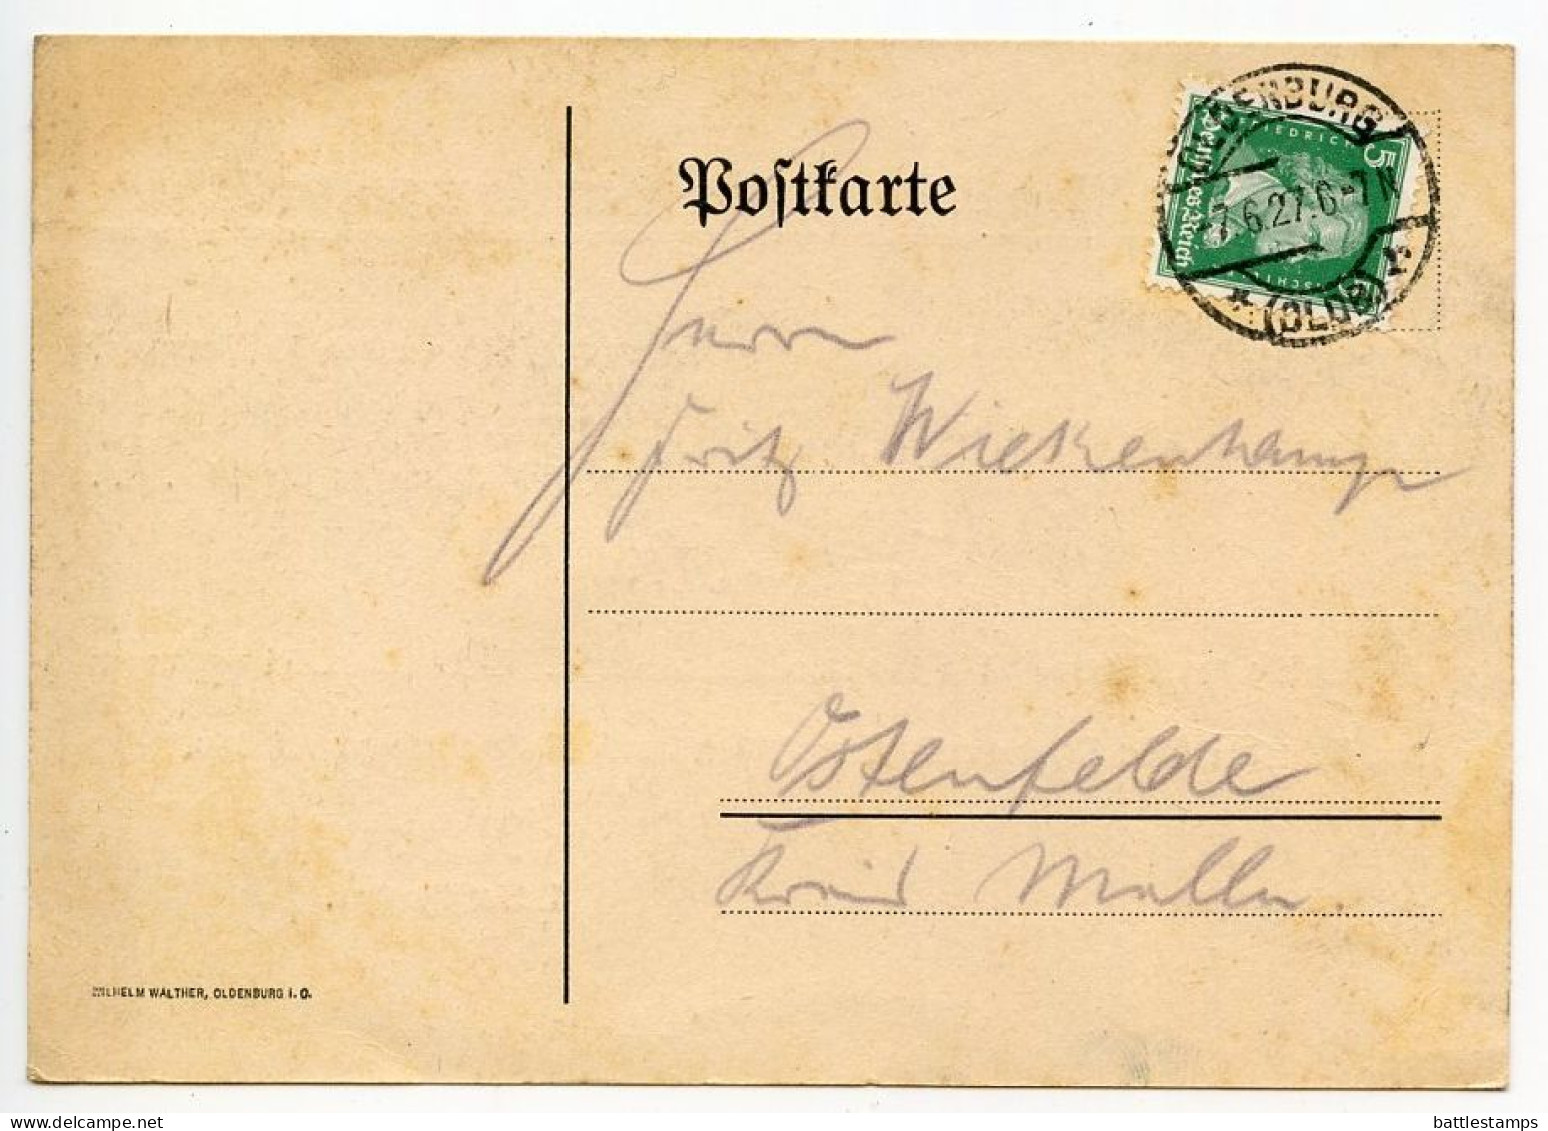 Postkarte
OLDENBURG
7.6.27.6-7N
* (OLDB)
5
FRIEDRICH
Deutsches Reich
Herrn
Fritz Wiekenkamp
Ostenfelde
Kreis Melle
WILHELM WALTHER, OLDENBURG i. O.
battlestamps